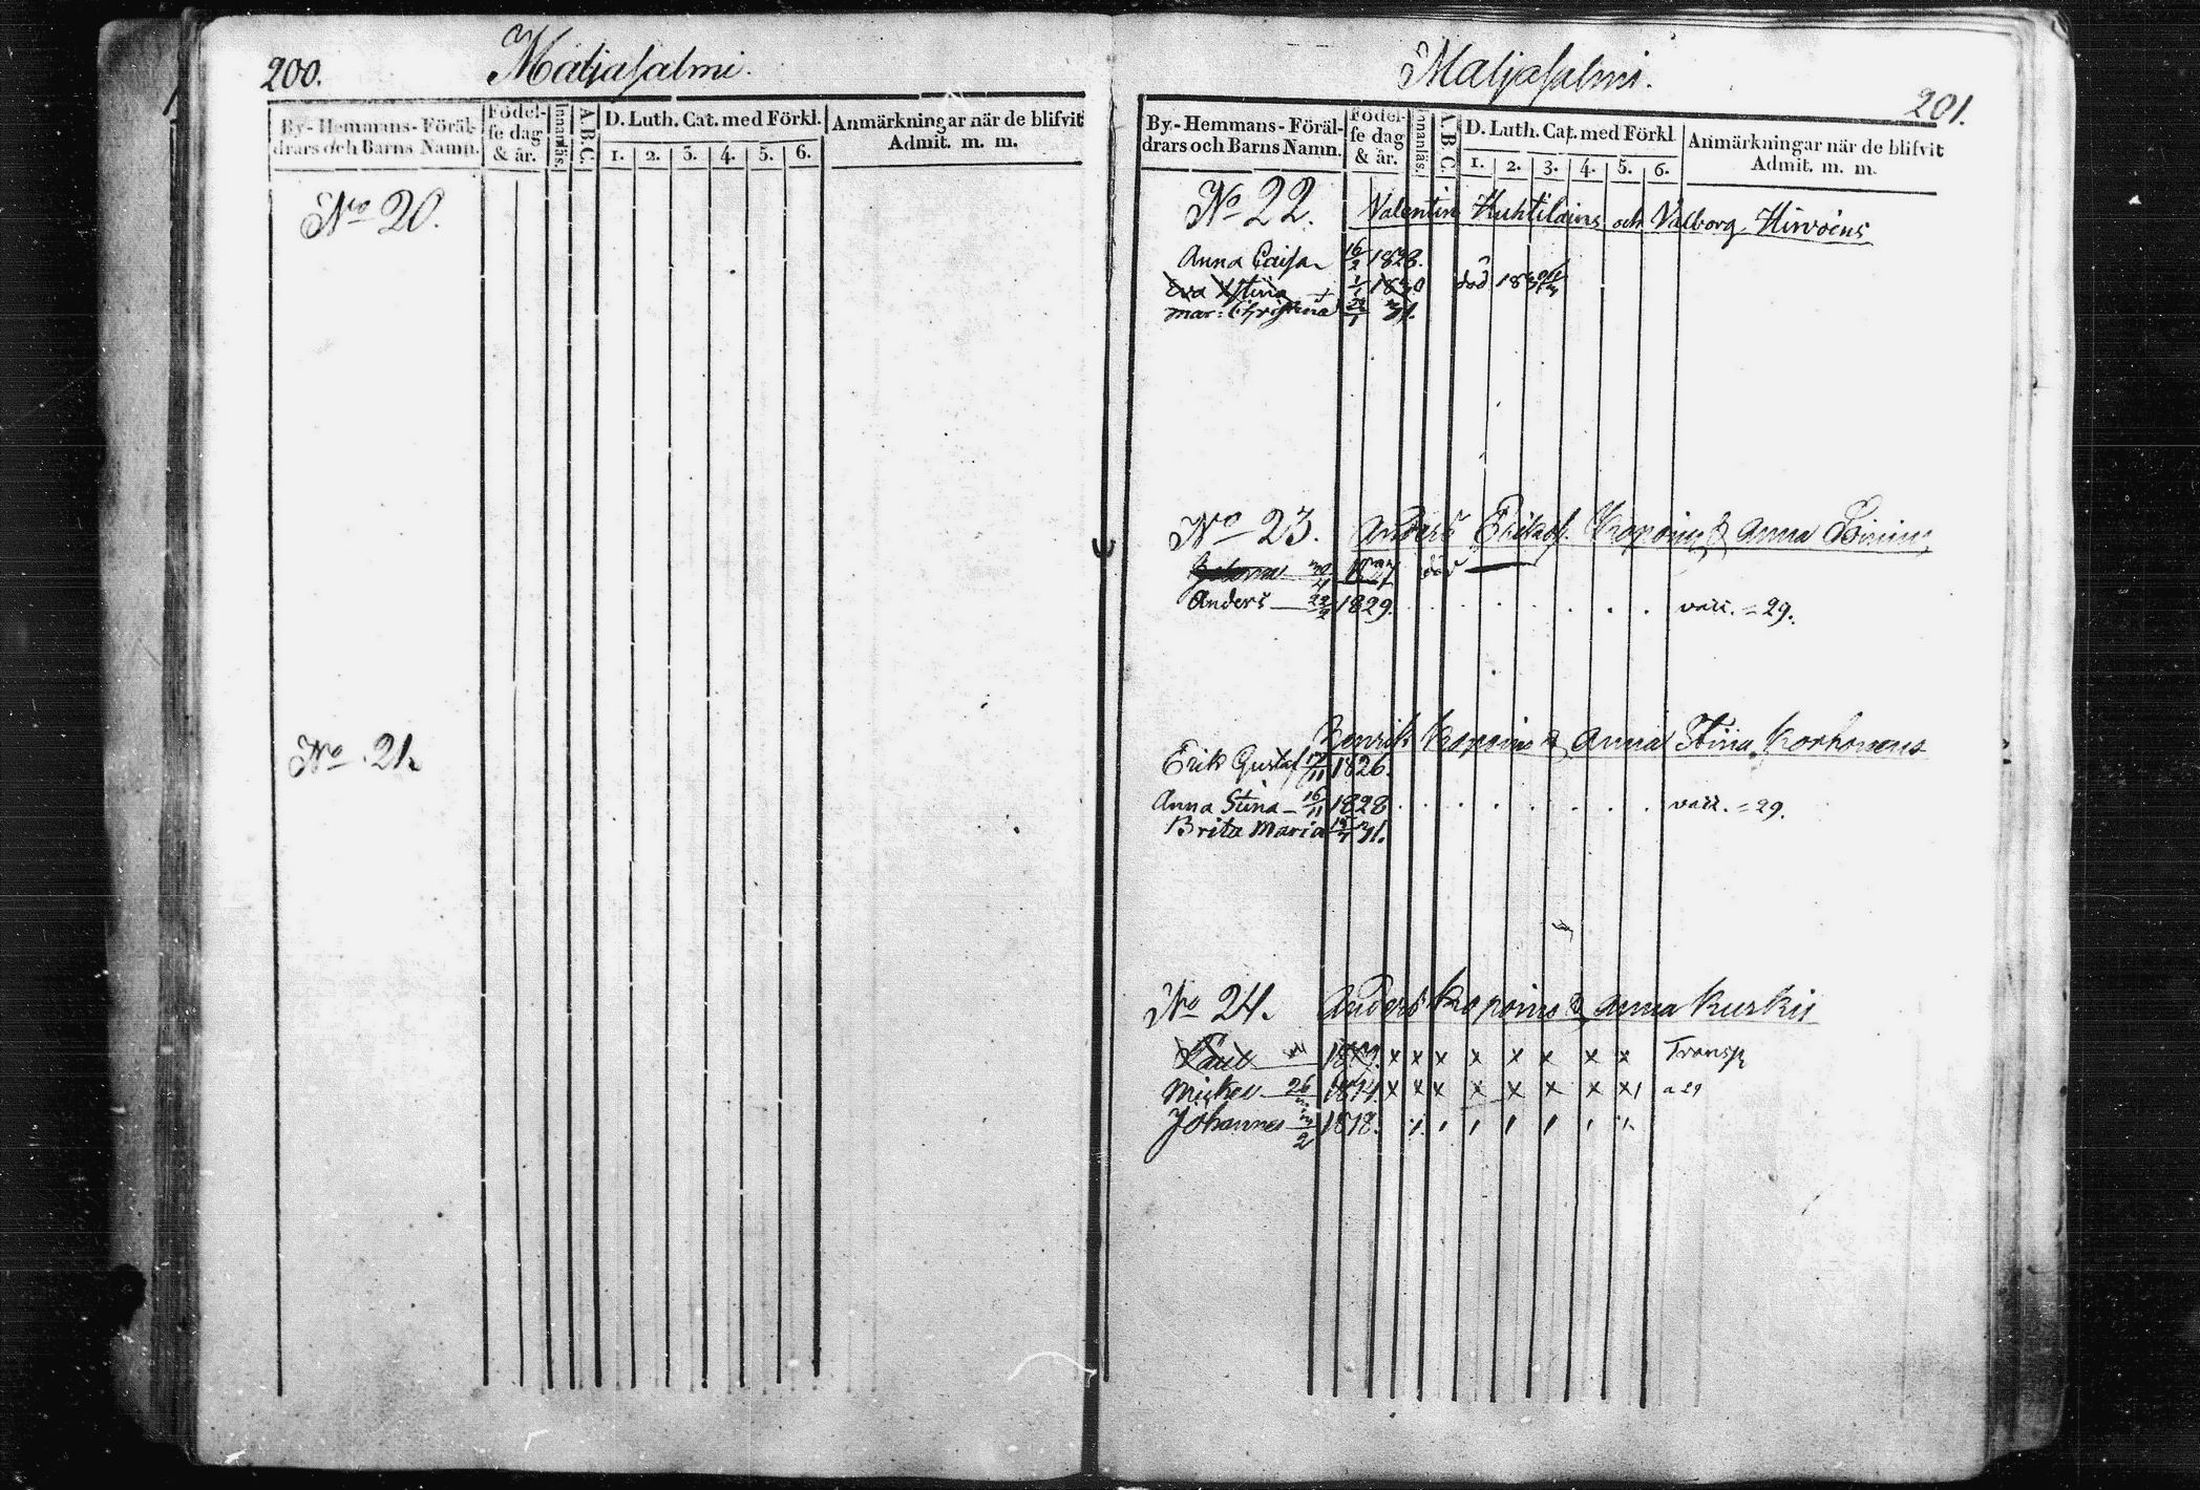 200.
Maljasalmi.
By-Hemmans-Föräl-
drars och Barns Namn.
Födel-
se dag
& år.
Innanläs.
A.B.C.
D. Luth. Cat. med Förkl.
1. 2. 3. 4. 5. 6.
Anmärkningar när de blifvit
Admit. m. m.
No 20.
No 21.
Maljasalmi.
201.
By-Hemmans-Föräl-
drars och Barns Namn.
Födel-
se dag
& år.
Innanläs.
A.B.C.
D. Luth. Cat. med Förkl
1. 2. 3. 4. 5. 6.
Anmärkningar när de blifvit
Admit. m. m.
No 22. Valentin Huhtilains och Valborg Hirvoins
Anna Caisa 16/2 1828.
Eva Stina 1830 död
Mar: Christina 31.
No 23. Anders Kopoins & Anna
1827 död
Anders 22/2 1829. . . . . . . . . vacc. = 29.
Henrik Kopoins & Anna Stina Korhonens
Erik Gustaf 17/11 1826.
Anna Stina 16/11 1828 . . . . . . . . vacc. = 29.
Brita Maria 31.
No 24. Anders Kopoins & Anna Kurkis
x x x x x x x x Transp
Mickel 26 1814. x x x x x x x x a 29
Johannes 1818.